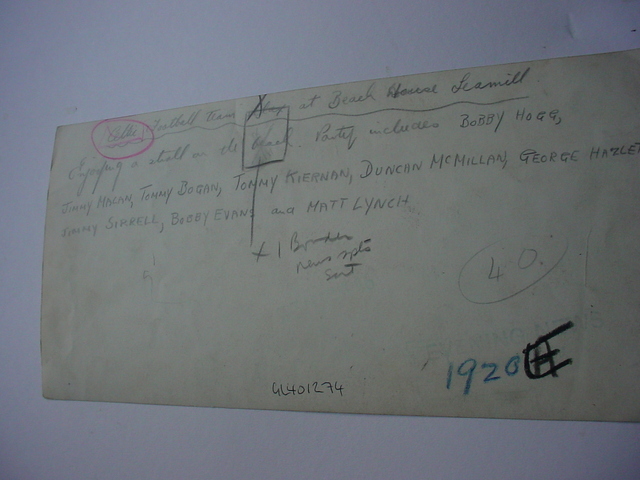 Celtic Football team stay at Beach House Seamill.
Enjoying a stroll on the beach. Party includes BOBBY HOGG,
JIMMY MALLAN, TOMMY BOGAN, TOMMY KIERNAN, DUNCAN MCMILLAN, GEORGE HAZLET
JIMMY SIRRELL, BOBBY EVANS and MATT LYNCH.
X 1
news
40.
GL401274
1920H